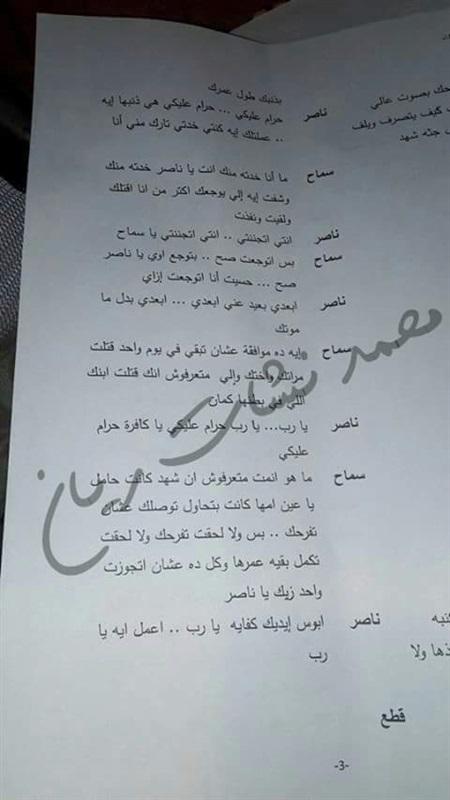 بذنبك طول عمرك
ناصر حرام عليكي ... حرام عليكي هي ذنبها إيه
.. عملتلك إيه كنتي خدتي تارك مني أنا
سماح ما أنا خدته منك انت يا ناصر خدته منك
وشفت إيه إلي يوجعك اكتر من انا اقتلك
ولقيت ونفذت
ناصر انتي اتجننتي .. انتي اتجننتي يا سماح
سماح بس اتوجعت صح .. بتوجع اوي يا ناصر
صح ... حسيت أنا اتوجعت إزاي
ناصر ابعدي بعيد عني ابعدي ... ابعدي بدل ما
موتك
سماح إيه ده موافقة عشان تبقي في يوم واحد قتلت
مراتك واختك وإلي متعرفوش انك قتلت ابنك
اللي في بطنها كمان
ناصر يا رب... يا رب حرام عليكي يا كافرة حرام
عليكي
سماح ما هو انمت متعرفوش ان شهد كانت حامل
يا عين امها كانت بتحاول توصلك عشان
تفرحك .. بس ولا لحقت تفرحك ولا لحقت
تكمل بقيه عمرها وكل ده عشان اتجوزت
واحد زيك يا ناصر
ناصر ابوس إيديك كفايه يا رب .. اعمل ايه يا
رب
قطع
-3-
بصوت عالي
كيف يتصرف ويلف
جثه شهد
ولا
محمد